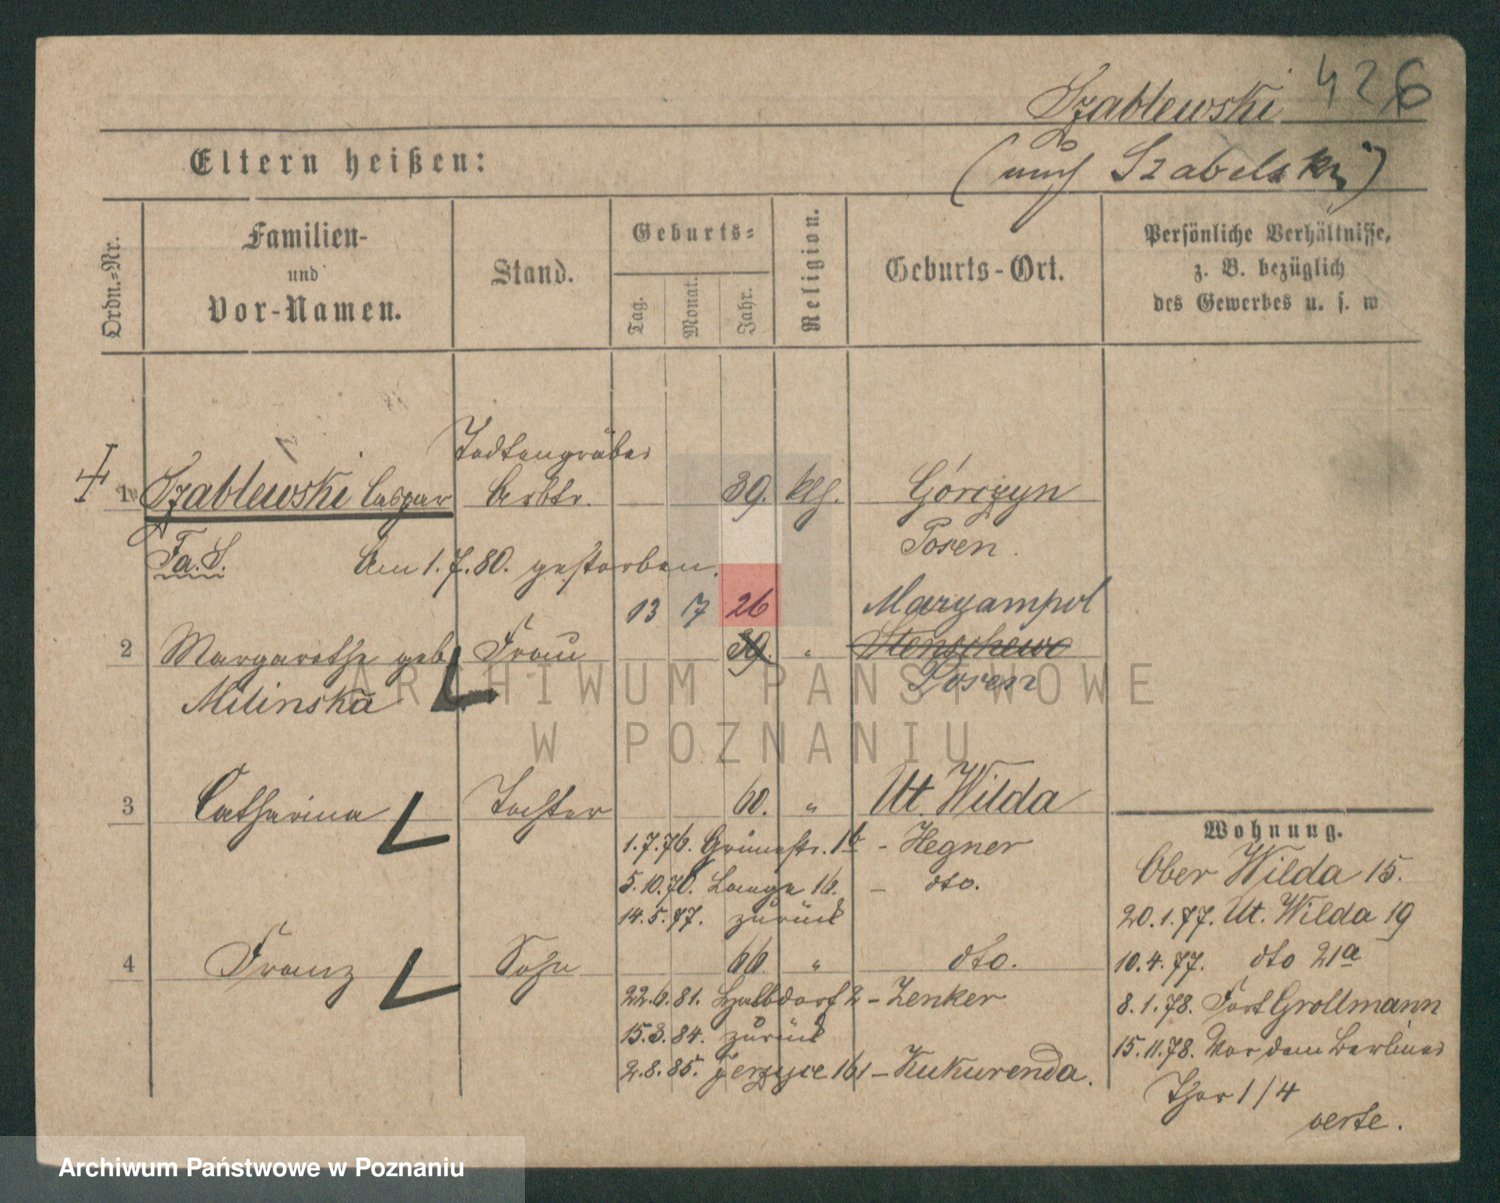 Szablewski 426
Eltern heißen:
(auch Szabelski)
Ordn.-Nr.
Familien-
und
Vor-Namen.
Stand.
Geburts-
Tag.
Monat.
Jahr.
Religion.
Geburts-Ort.
Persönliche Verhältnisse,
z. B. bezüglich
des Gewerbes u. s. w
Todtengräber
1. Szablewski Caspar Arbtr. 39. klh. Górczyn
Posen.
Fa. S. Am 1.7.80. gestorben.
13 17 26 Maryampol
2 Margarethe geb. Frau 39. " Stenschewo
Milinska Posen
3 Catharina Tochter 60. " Ut. Wilda
1.7.76. 16 - Hegner
5.10.76. Lange 16. - dto.
14.5.77. zurück
4 Franz Sohn 66. " dto.
22.6.81. Halbdorf 2 - Zenker
15.3.84. zurück
2.8.85. Jerzyce 161 - Kukurenda.
Wohnung.
Ober Wilda 15.
20.1.77. Ut. Wilda 19
10.4.77. dto 21a
8.1.78. Fort Grollmann
15.11.78. Vor dem Berliner
Thor 1/4
verte.
ARCHIWUM PAŃSTWOWE
W POZNANIU
Archiwum Państwowe w Poznaniu